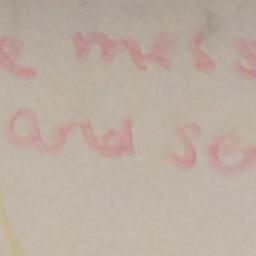 e mess
and se